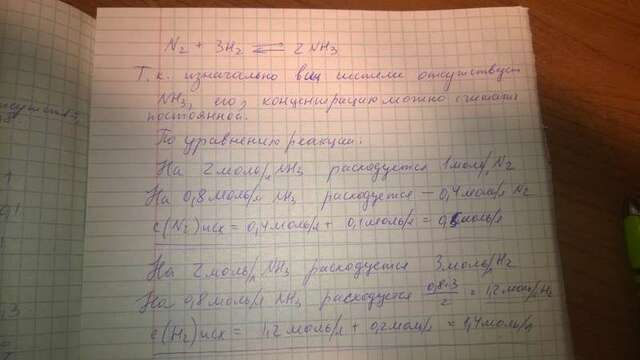 N2 + 3H2 ⇌ 2NH3
Т.к. изначально в системе отсутствует
NH3, его концентрацию можно считать
постоянной.
По уравнению реакции:
На 2 моль/л NH3 расходуется 1 моль/л N2
На 0,8 моль/л NH3 расходуется – 0,4 моль/л N2
с(N2)исх = 0,4 моль/л + 0,1 моль/л = 0,5 моль/л
На 2 моль/л NH3 расходуется 3 моль/л H2
На 0,8 моль/л NH3 расходуется 0,8·3/2 = 1,2 моль/л H2
с(H2)исх = 1,2 моль/л + 0,2 моль/л = 1,4 моль/л